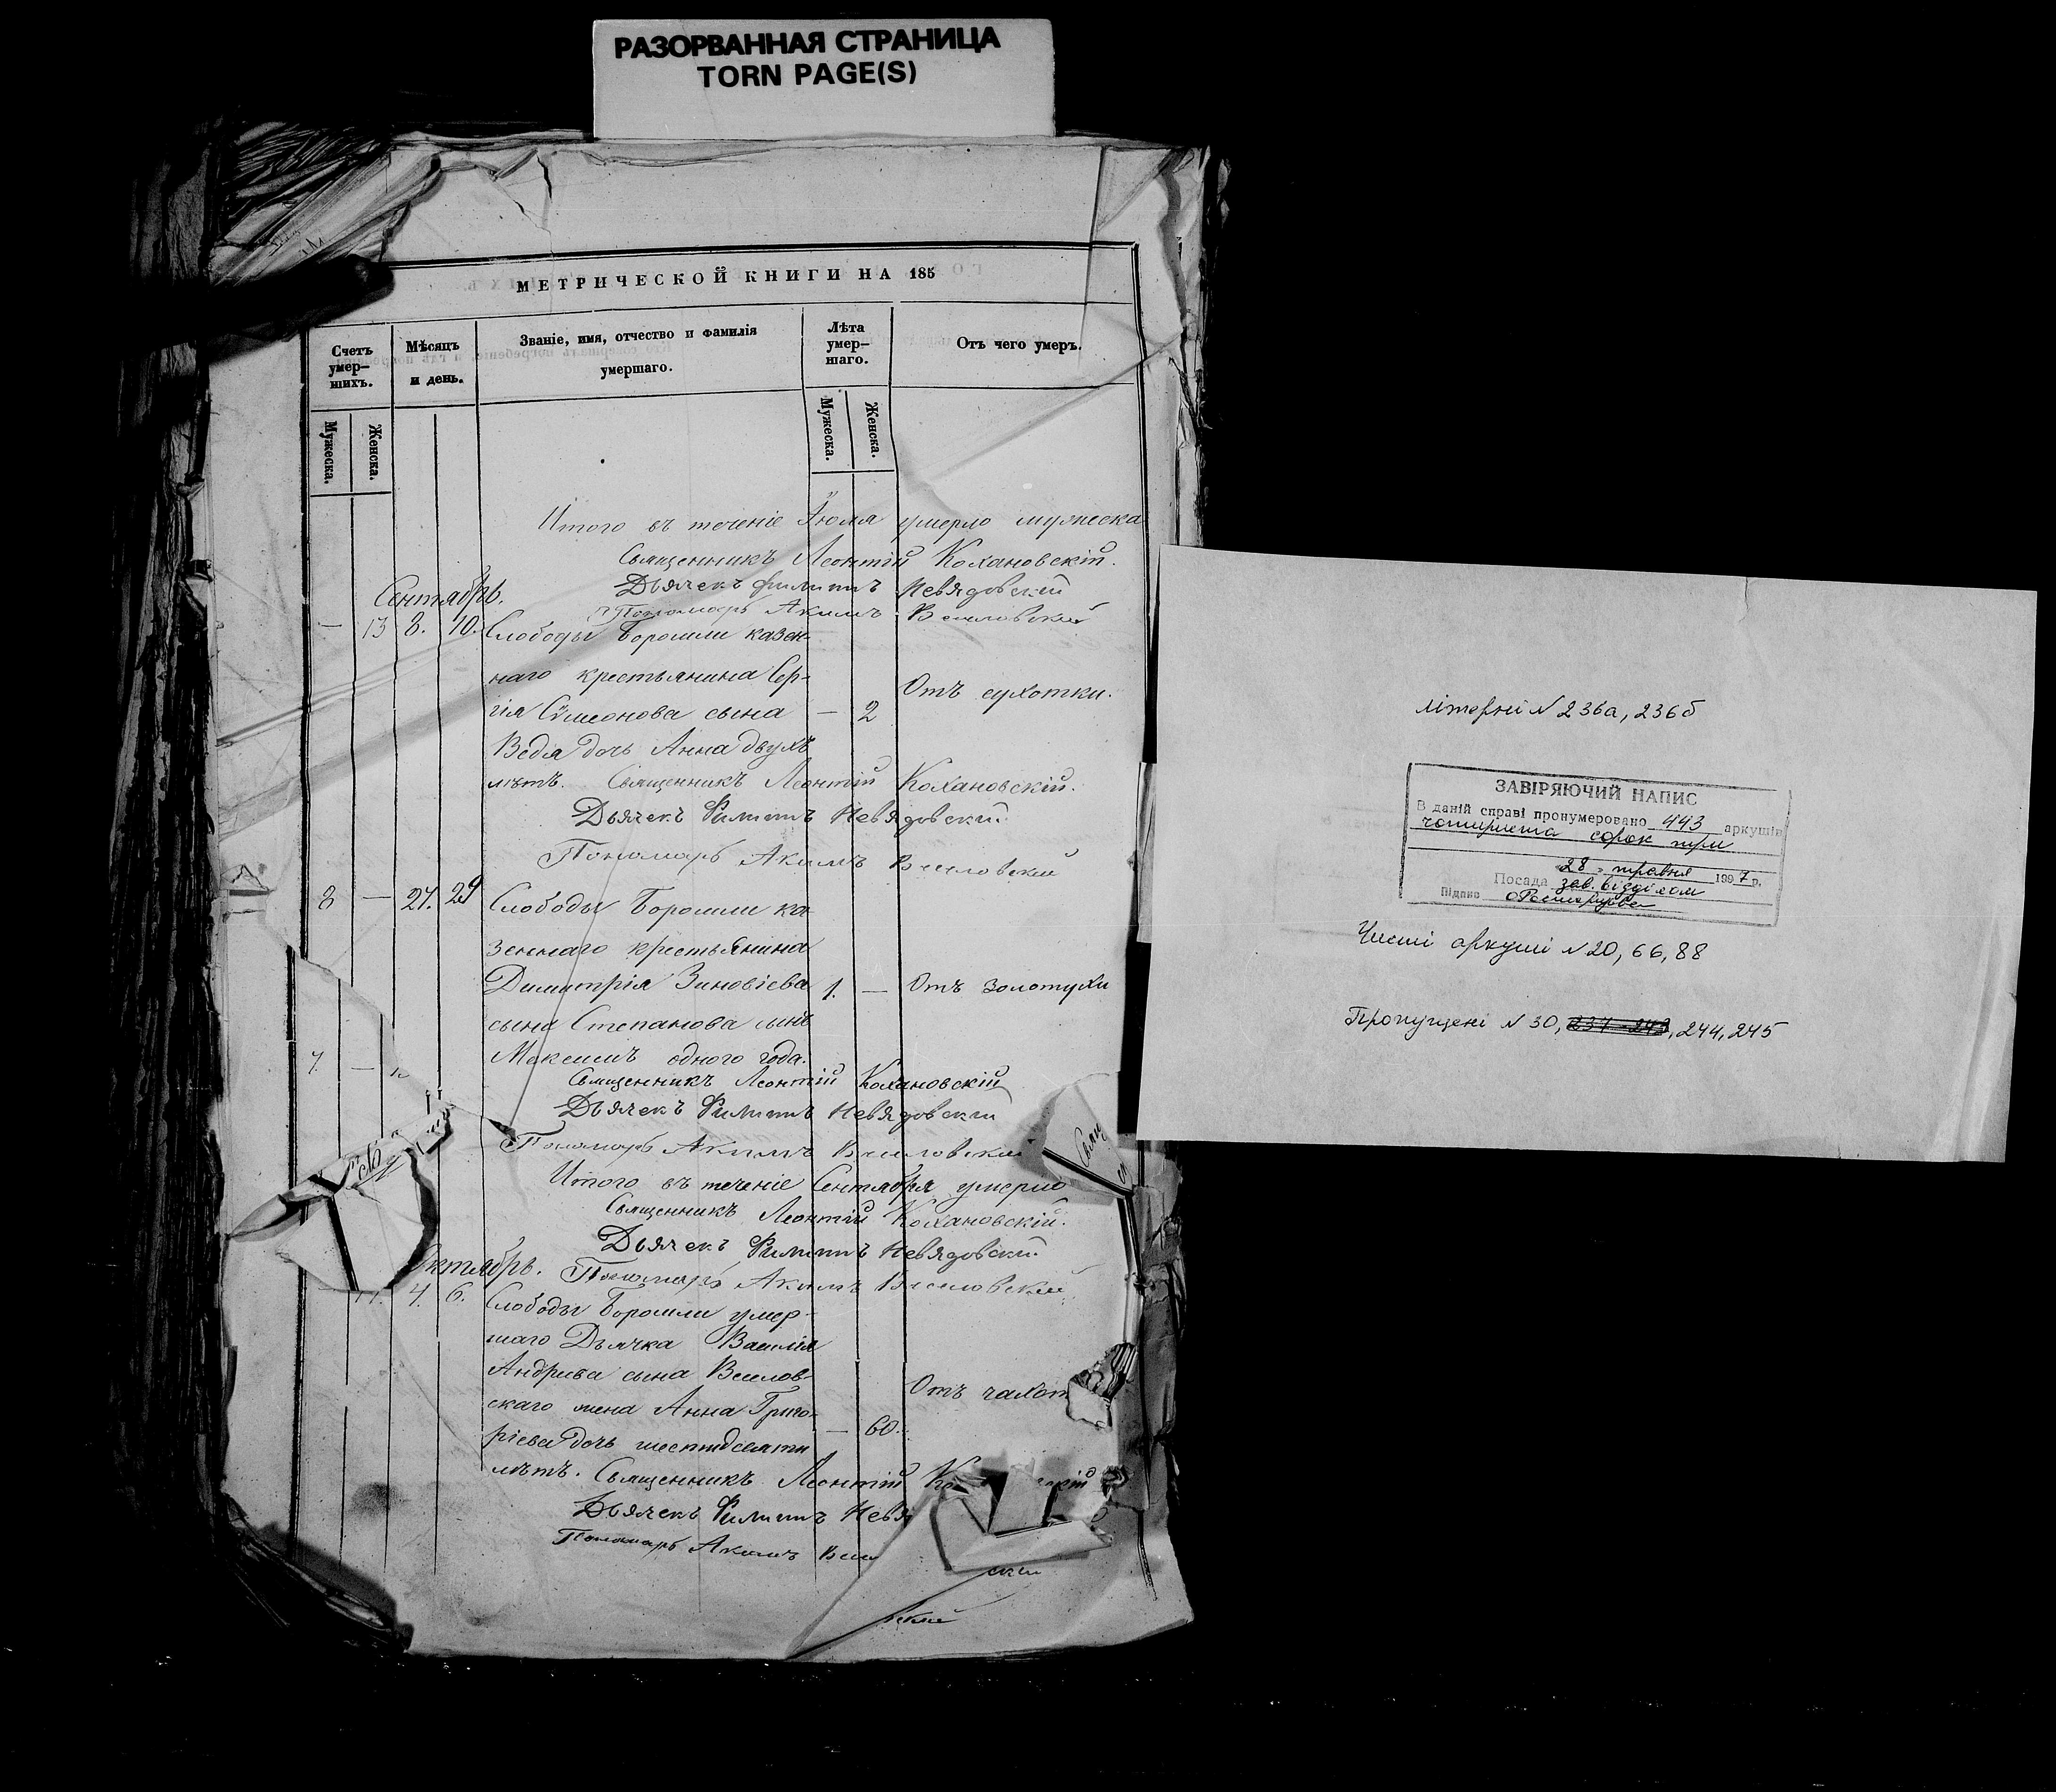 РАЗОРВАННАЯ СТРАНИЦА
TORN PAGE(S)
МЕТРИЧЕСКОЙ КНИГИ НА 185
Счетъ умер-шихъ.
Мѣсяцъ и день.
Званіе, имя, отчество и фамилія умершаго.
Лѣта умер-шаго.
Отъ чего умеръ.
Мужеска.
Женска.
Мужеска.
Женска.
Итого въ теченіе Іюля умерло мужеска
Священникъ Леонтій Кохановскій.
Дьячекъ Филиппъ Невядовскій
Сентябрь.
Пономарь Акимъ Вселовскій
— 13 8. 10. Слободы Боромли казен-
наго крестьянина Сер-
гія Сѵмеонова сына — 2 Отъ сухотки.
Ведя дочь Анна двухъ
лѣтъ. Священникъ Леонтій Кохановскій.
Дьячекъ Филиппъ Невядовскій
Пономарь Акимъ Вселовскій
8 — 27. 29 Слободы Боромли ка
зеннаго крестьянина
Димитрія Зиновіева 1. — Отъ золотухи
сына Степанова сынъ
Максимъ одного года.
7. —
Священникъ Леонтій Кохановскій
Дьячекъ Филиппъ Невядовскій
Пономарь Акимъ Вселовскій
Итого въ теченіе Сентября умерло
Священникъ Леонтій Кохановскій.
Дьячекъ Филиппъ Невядовскій
Октябрь. Пономарь Акимъ Вселовскій
4. 6. Слободы Боромли умер-
шаго Дьячка Василія
Андреева сына Вселов-
скаго жена Анна Григо- Отъ чахот
ріева дочь шестидесяти — 60.
лѣтъ. Священникъ Леонтій Ко скій
Дьячекъ Филиппъ Невя
Пономарь Акимъ Все
скій
літерні N 236а, 236б
ЗАВІРЯЮЧИЙ НАПИС
В даній справі пронумеровано 443 аркушів
чотириста сорок три
28 травня 1997 р.
Посада зав. відділом
Підпис
Чисті аркуші N 20, 66, 88
Пропущені N 30, 244, 245